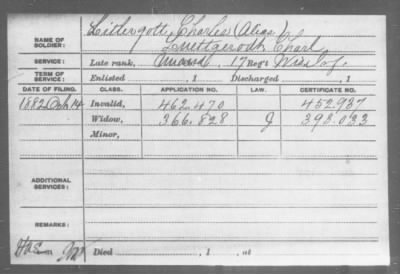 NAME OF SOLDIER: Litlergott, Charles (Alias)
Luettgerodt, Charl
SERVICE: Late rank, 17 Reg't Wis. Inf.
TERM OF SERVICE: Enlisted , 1 Discharged , 1
DATE OF FILING. CLASS. APPLICATION NO. LAW. CERTIFICATE NO.
1882 Invalid, 462.470 452.937
Widow, 366.828 G 393.033
Minor,
ADDITIONAL SERVICES:
REMARKS:
Died , 1 , at